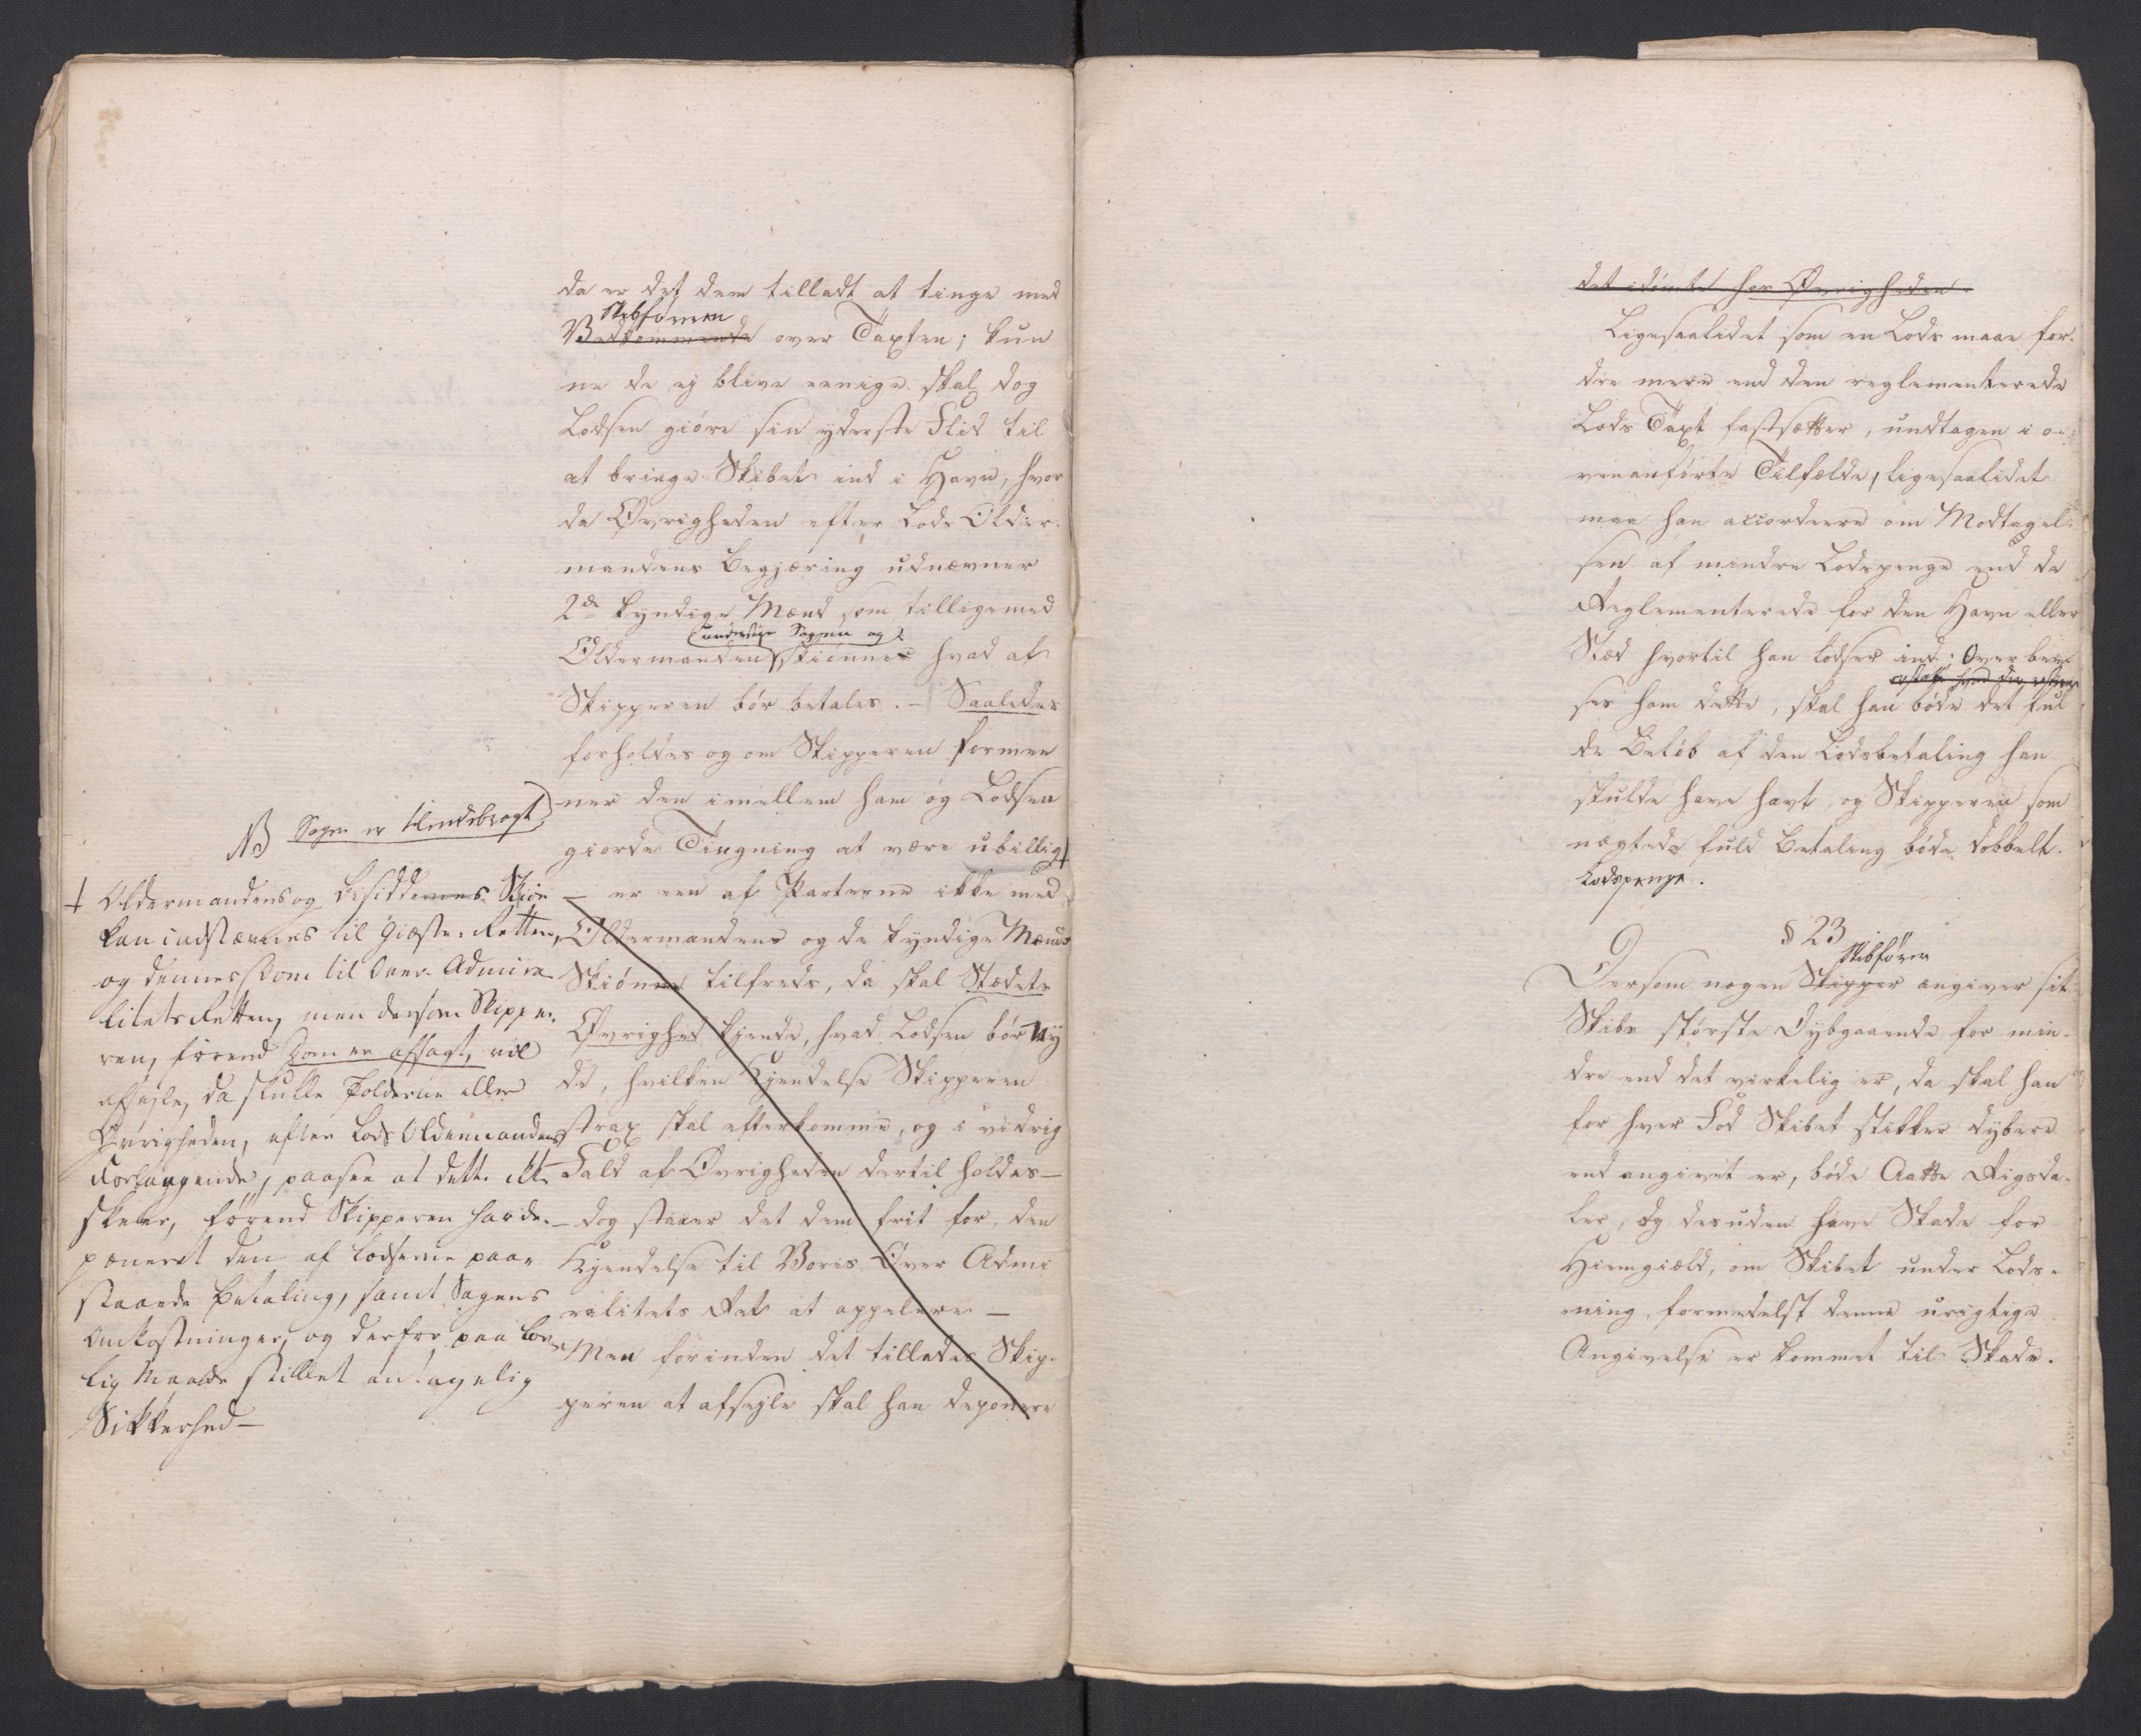 da er det dem tilladt at tinge med
Skibsføreren
Vedkommende over Taxten; kun
ne de ej blive eenige skal dog
Lodsen giöre sin yderste Flid til
at bringe Skibet ind i Havn, hvor
da Øvrigheden efter Lods Older-
mandens Begjæring udnævner
2de kyndige Mænd som tilligemed
undersøge Sagen og
Oldermanden skiönner hvad af
Skipperen bör betales. - Saaledes
forholdes og om Skipperen formee
ner den imellem ham og Lodsen
giorde Tingning at være ubillig
- er een af Parterne ikke med
Oldermandens og de kyndige Mænds
Skiönne tilfreds, da skal Stædets
Øvrighed kjende, hvad Lodsen bör ny
de, hvilken Kjendelse Skipperen
strax skal efterkomme, og i vidrig
Fald af Øvrigheden dertil holdes -
- dog staaer det dem frit for, den
Kjendelse til Vores Over Admi
ralitets Ret at appelere -
Men forinden det tillades Skip-
peren at afsejle skal han deponere
NB Sagen er tilendebragt
+ Oldermandens og Besiddernes Skiön
kan indstævnes til Giæste-Retten,
og dennes Dom til Over-Admira
litets Retten, men dersom Skippe-
ren, förend Dom er afsagt, vil
afsejle, da skulle Tolderne eller
Øvrigheden, efter Lods Oldermandens
Forlangende, paasee at dette ikke
skeer, förend Skipperen har de-
poneret den af Lodserne paa-
staaede Betaling, samt Sagens
Omkostninger, og derfor paa lov-
lig Maade stillet antagelig
Sikkerhed -
det idömte hos Øvrigheden.
Ligesaalidet som en Lods maae for-
dre mere end den reglementerede
Lods Taxt fastsætter, undtagen i o-
venanförte Tilfælde, ligesaalidet
maa han accordeere om Modtagel-
sen af mindre Lodspenge end de
Reglementerede for den Havn eller
Stæd hvortil han lodser ind; Overbevi
ses ham dette, skal han böde det ful
de Belöb af den Lodsbetaling han
skulde have havt, og Skipperen som
nægtede fuld Betaling böde dobbelt
Lodspenge.
§ 23
Skibsfører
Dersom nogen Skipper angiver sit
Skibs störste Dybgaaende for min-
dre end det virkelig er, da skal han
for hver Fod Skibet stikker dybere
end angivet er, böde Aatte Rigsda-
ler, og desuden have Skade for
Hiemgiæld, om Skibet under Lods-
ning formedelst denne urigtige
Angivelse er kommet til Skade.